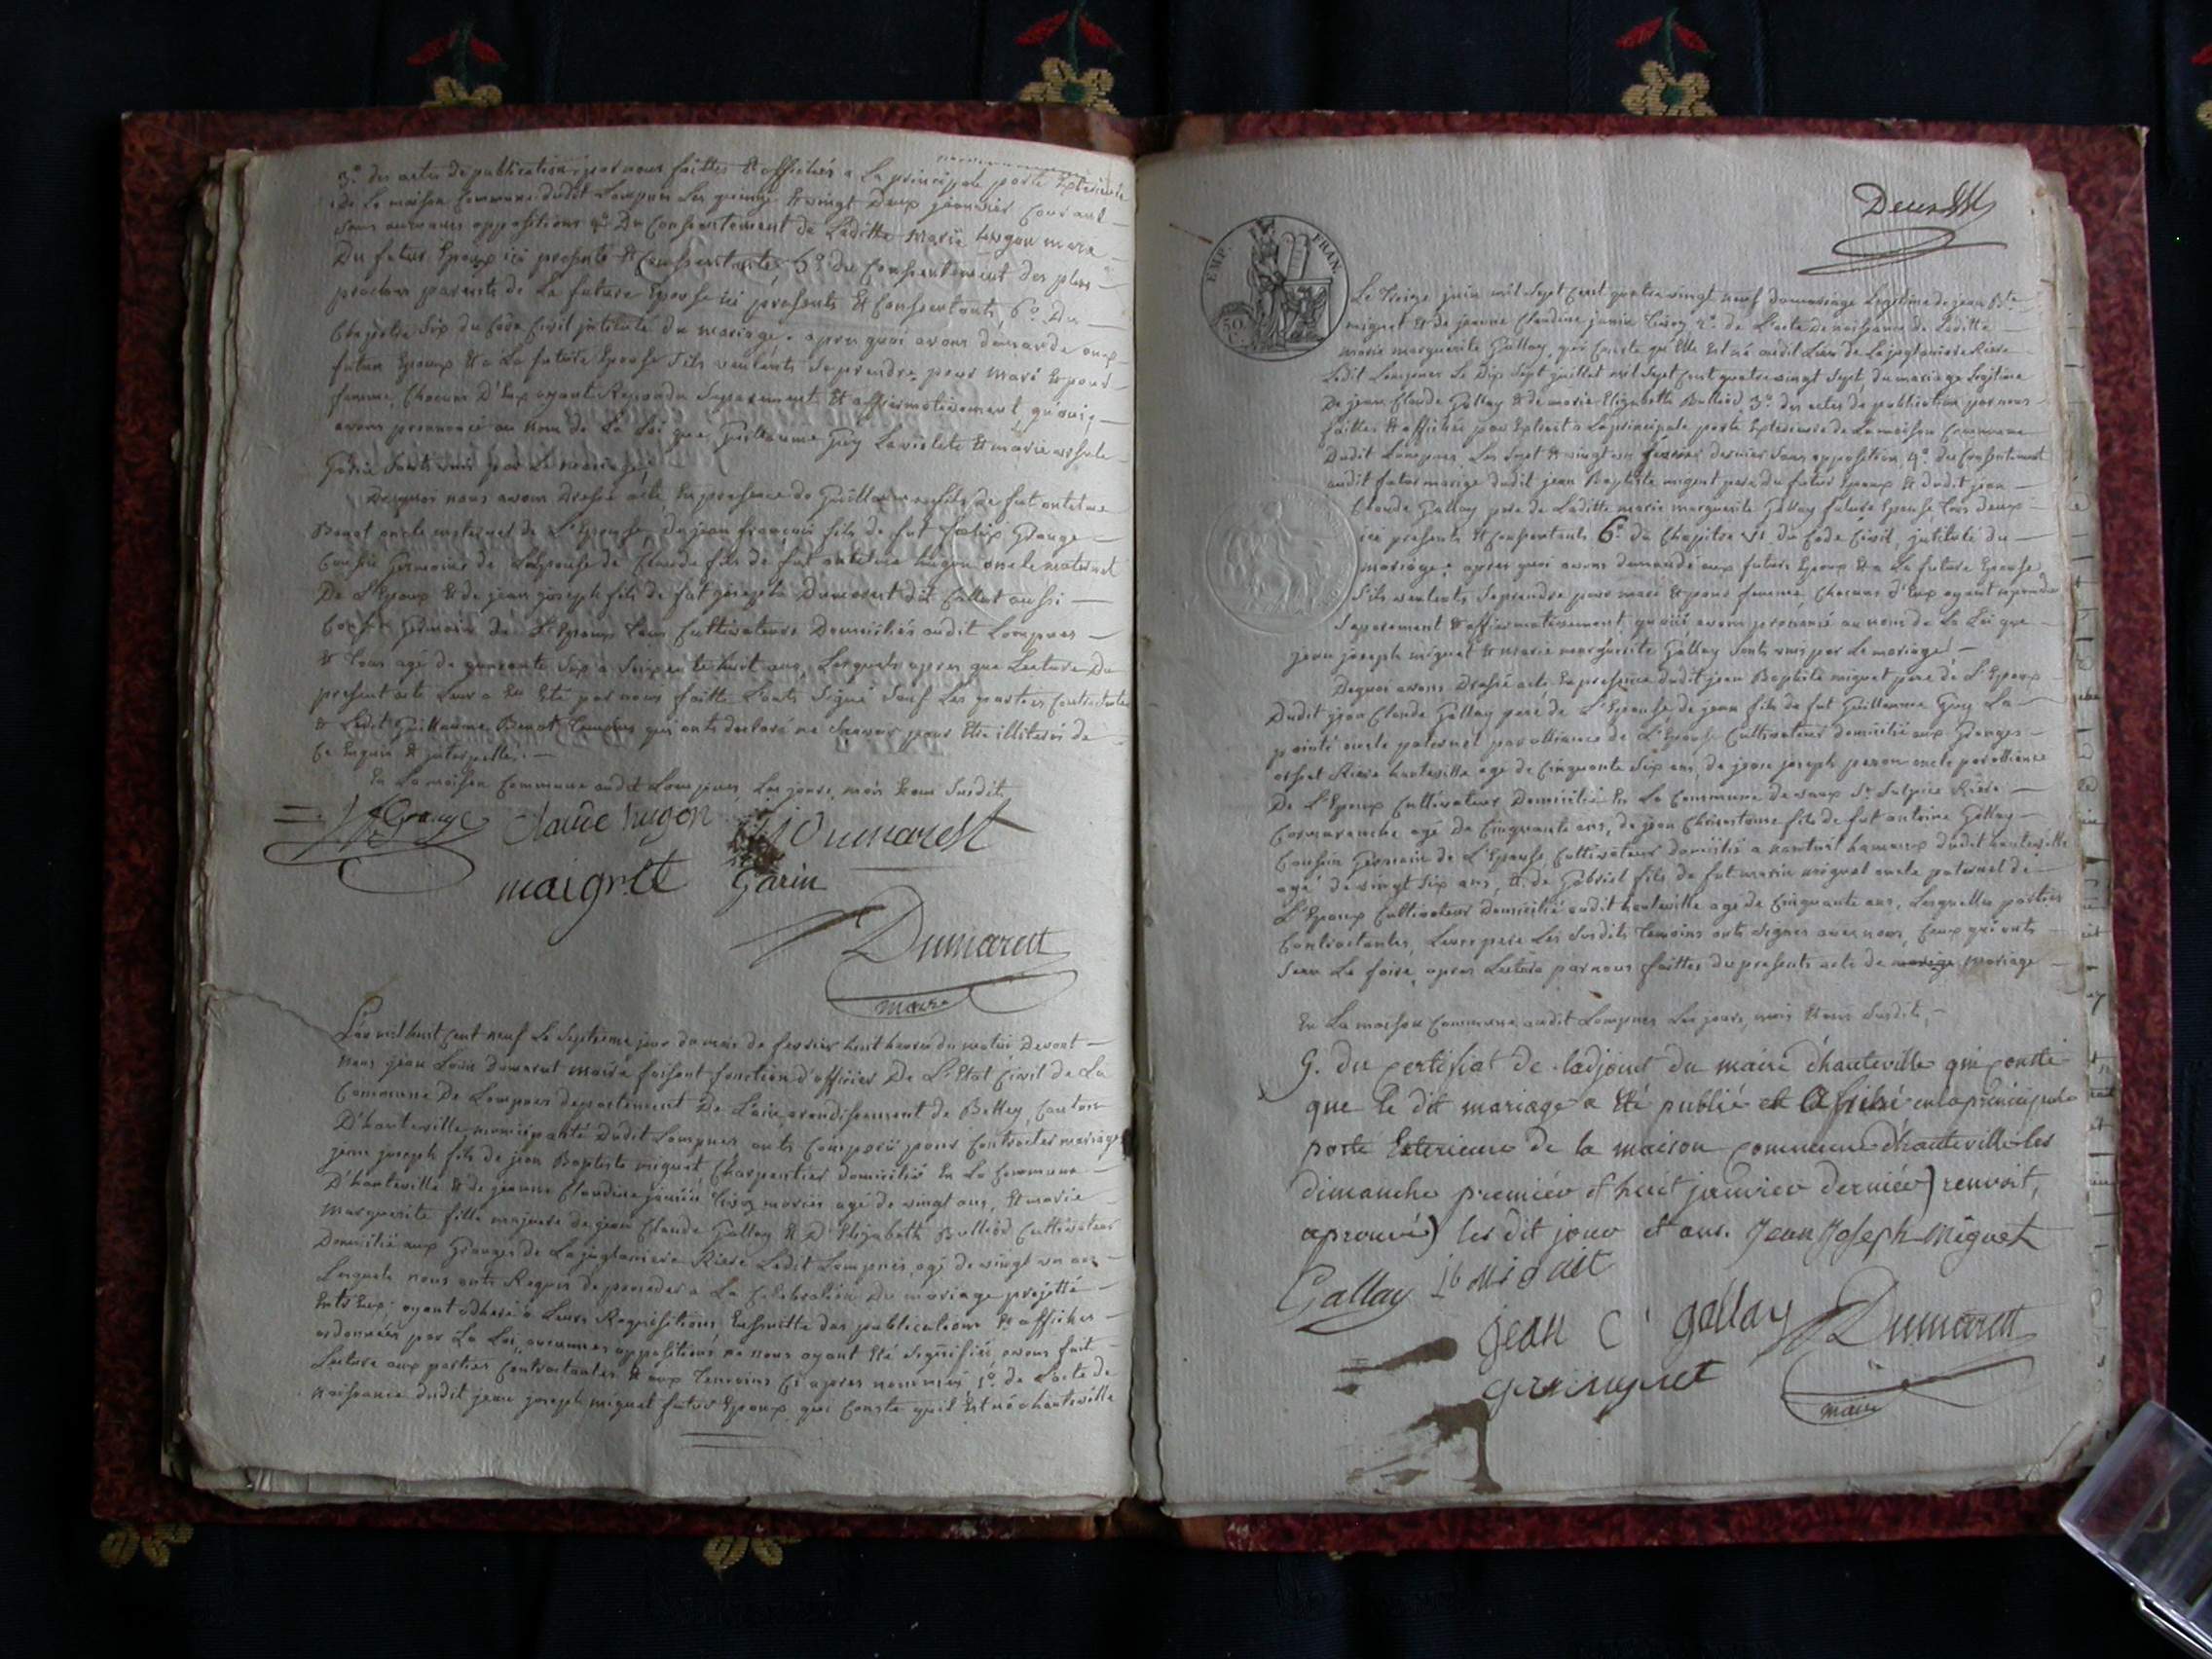 3º des actes de publication par nous faittes & affichés a la principale porte Exterieure
de la maison Commune dudit Lompnes les quinze & vingt Deux janvier Courant
sans aucunes oppositions 4º Du Consentement de Laditte Marie hugon mere
Du futur Epoux ici presente & Consentante, 5º du Consentement des plus
proches parents de la future Epouse ici presents & Consentants, 6º Du
Chapitre Six du Code Civil intitulé du mariage. apres quoi avons demandé aux
futur Epoux & a La future Epouse s'ils veulents se prendre pour Mari & pour
femme, Chacun D'Eux ayant Repondu Separement & affirmativement qu'oui,
avons prononcé au nom de La Loi que Guillaume Guy Laviolete & marie ursule
Garin sonts unis par le mariage
Dequoi nous avons Dressé acte En presence de Guillaume fils de fut antelme
Benot oncle maternel de L'Epouse, de jean françois fils de fut felix Grange
Cousin Germain de L'Epouse de Claude fils de fut antelme hugon oncle maternel
De L'Epoux & de jean joseph fils de fut joseph Dumarest dit Callat aussi
Cousin Germain de L'Epoux tous Cultivateurs Domiciliés audit Lompnes
& tous agé de quarante six a soixente huit ans, Lesquels apres que Lecture Du
present acte Leur a Eu Eté par nous faitte L'onts Signé Sauf Les parties Contractantes
& Ledit Guillaume Benot temoins qui onts declaré ne Scavoir pour Etre illiterés de
Ce Enquis & interpellés.
En La maison Commune audit Lompnes, Les jours, mois & an Susdit.
JF Grange Claude hugon JJ Dumarest
maigret Garin
Dumarest
maire
L'an mil huit Cent neuf le Septieme jour du mois de fevrier huit heures du matin Devant
Nous jean Louis Dumarest maire faisant fonction d'officier De L'Etat Civil de La
Commune De Lompnes departement De L'ain, arondissement de Belley, Canton
D'hauteville, municipalité dudit Lompnes onts Comparu pour Contracter mariage
jean joseph fils de jean Baptiste miguet Charpentier domicilié En La Commune
D'hauteville & de jeanne Claudine janin tivoz mariés agé de vingt ans, & marie
Marguerite fille majeure de jean Claude Gallay & D'Elizabeth Bulliod Cultivateur
Domicilié aux Granges de La juglaniere Riere Ledit Lompnes, agé de vingt un ans
Lesquels nous onts Requis de proceder a La Celebration Du mariage projetté
Entr'Eux; ayant adheré a Leurs Requisitions, Ensuitte des publications & affiches
ordonnées par La Loi, aucunnes oppositions ne nous ayant Eté Signifiés avons fait
Lecture aux parties Contractantes & aux temoins Ci apres nommés 1º de L'acte de
naissance dudit jean joseph miguet futur Epoux qui Conste qu'il Est né a hauteville
EMP. FRAN.
50 C.
Le treize juin mil Sept Cent quatre vingt neuf du mariage Legitime de jean Bte
miguet & de jeanne Claudine janin tivoz, 2º de L'acte De naissance de Laditte
Marie marguerite Gallay, qui Conste qu'Elle Est né audit Lieu de La juglaniere Riere
Ledit Lompnes Le Dix Sept juillet mil Sept Cent quatre vingt Sept du mariage Legitime
De jean Claude Gallay & de marie Elizabeth Bulliod, 3º des actes de publication par nous
faittes & affichés par Extrait a La principale porte Exterieure de La maison Commune
Dudit Lompnes Les Sept & vingt un dernier Sans opposition, 4º du Consentement
audit futur mariage dudit jean Baptiste miguet pere du futur Epoux & dudit jean
Claude Gallay pere de Laditte marie marguerite Gallay future Epouse tous deux
ici presents & Consentants 6º du Chapitre VI du Code Civil, intitulé du
mariage; apres quoi avons demandé aux futur Epoux & a La future Epouse
s'ils veulents se prendre pour mari & pour femme, Chacun d'Eux ayant repondu
Separement & affirmativement qu'oüi, avons prononcé au nom de La Loi que
jean joseph miguet & marie marguerite Gallay Sonts unis par Le mariage!
Dequoi avons Dressé acte En presence dudit jean Baptiste miguet pere de L'Epoux
Dudit jean Claude Gallay pere de L'Epouse, de jean fils de fut Guillaume Guy La
pointe oncle paternel par alliance de L'Epouse Cultivateur domicilié aux Granges
Riere hauteville agé de Cinquante Six ans, de jean joseph peron oncle par alliance
De L'Epoux Cultivateur Domicilié En La Commune de vaux St Sulpice Riere
Cormaranche agé De Cinquante ans, de jean Chrisostome fils de fut antoine Gallay
Cousin Germain de L'Epouse Cultivateur domicilié a nantuit hameaux dudit hauteville
agé de vingt Six ans, & de Gabriel fils de fut marin miguet oncle paternel de
L'Epoux Cultivateur Domicilié audit hauteville agé de Cinquante ans, Lesquelles parties
Contractantes, Leurs pere Les Susdits temoins onts Signés avec nous, Ceux qui onts
Seu Le faire, apres Lecture par nous faittes du presents acte de mariage mariage
En La maison Commune audit Lompnes Les jours, mois & ans Susdits,
9. du certificat de l'adjoint du maire d'hauteville qui conste
que le dit mariage a été publié et affiché en la principale
porte Exterieure de la maison commune d'hauteville les
dimanche premier et huit janvier dernier) renvoit,
aprouvé) les dit jour et ans. Jean Joseph Miguet
Gallay
jean C gallay Dumarest
maire